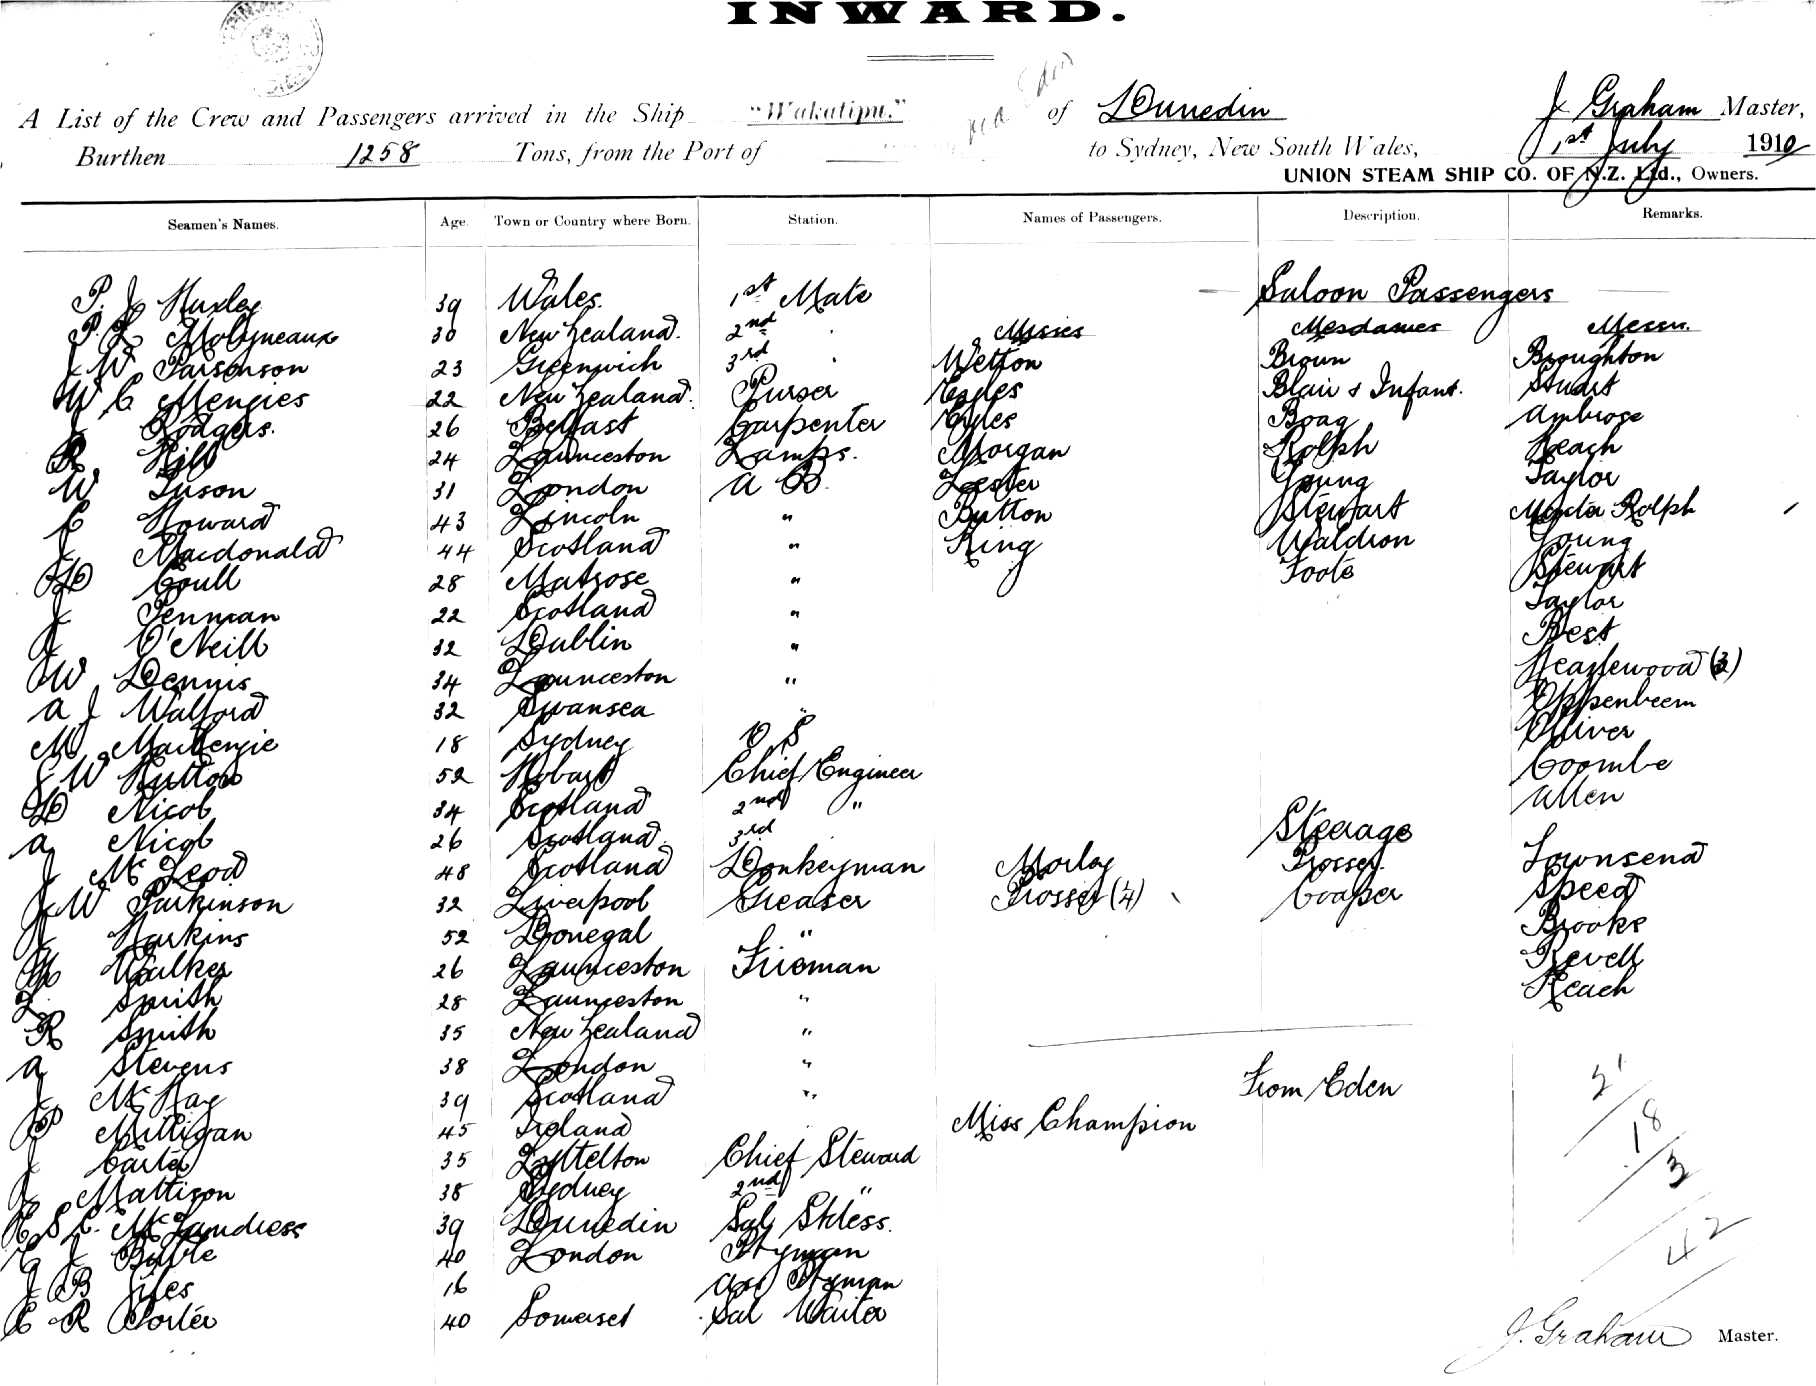 INWARD.
A List of the Crew and Passengers arrived in the Ship "Wakatipu." of Dunedin J Graham Master,
Burthen 1258 Tons, from the Port of to Sydney, New South Wales, 1st July 1910
UNION STEAM SHIP CO. OF N.Z. Ltd., Owners.
Seamen's Names. Age. Town or Country where Born. Station. Names of Passengers. Description. Remarks.
P. J Huxley 39 Wales. 1st Mate Saloon Passengers
P. L Molyneaux 30 New Zealand. 2nd Misses Mesdames Messrs.
J W Parsonson 23 Greenwich 3rd Wetton Brown Broughton
W C Menzies 22 New Zealand. Purser Eyles Blair & Infant. Stuart
J Rodgers. 26 Belfast Carpenter Eyles Boag Ambrose
R Hill 24 Launceston Lamps. Morgan Rolph Reach
W Tuson 31 London A B. Lester Young Taylor
C Howard 43 Lincoln " Button Stewart Master Rolph
J Macdonald 44 Scotland " King Waldron Young
D Coull 28 Matrose " Foote Stewart
J Penman 22 Scotland " Taylor
J O'Neill 32 Dublin " Best
W Dennis 34 Launceston " Heazlewood (3)
A J Walford 32 Swansea " Oppenheem
M MacKenzie 18 Sydney O S Oliver
J W Hutton 52 Hobart Chief Engineer Coombe
D Nicol 34 Scotland 2nd " Allen
A Nicol 26 Scotland 3rd Steerage
J McLeod 48 Scotland Donkeyman Morley Prosser. Townsend
J W Parkinson 32 Liverpool Greaser Prosser (4) Cooper Speed
J Harkins 52 Donegal " Brooke
Walker 26 Launceston Fireman Revell
L Smith 28 Launceston " Reach
R Smith 35 New Zealand "
A Stevens 38 London "
J McKay 39 Scotland " From Eden
P Milligan 45 Ireland Miss Champion
J Carter 35 Lyttelton Chief Steward
J Mattison 38 Sydney 2nd "
E S C. McLandress 39 Dunedin Sal Stdess.
J 40 London Ptryman
J B Giles 16 Asst Ptryman
C R Porter 40 Somerset Sal Waiter
21
18
3
42
J. Graham Master.